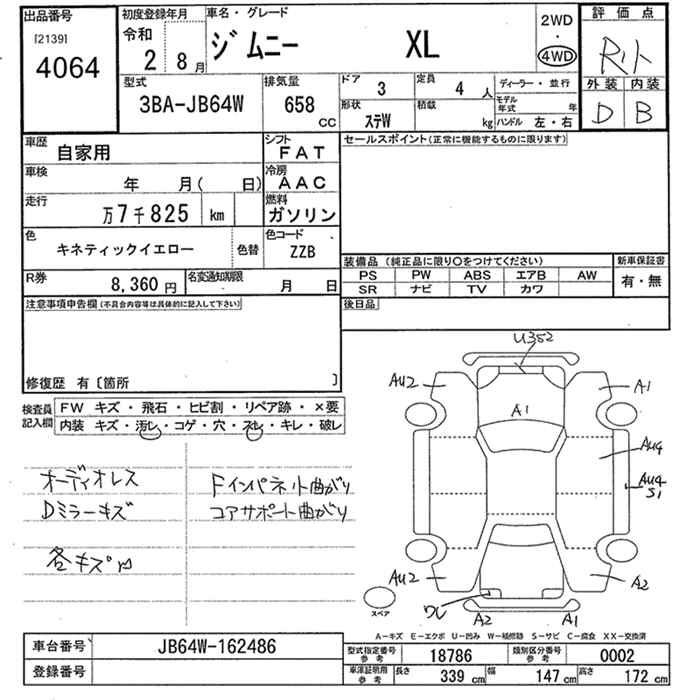 出品番号
[2139]
4064
初度登録年月
令和
2 8月
車名・グレード
ジムニー XL
2WD
・
4WD
評価点
外装 内装
D B
型式
3BA-JB64W
排気量
658
CC
ドア
3
定員
4 人
形状
ステW
積載
kg
ディーラー・並行
モデル年式 年
ハンドル 左・右
車歴
自家用
シフト
FAT
車検
年 月( 日)
冷房
AAC
走行
万7千825 km
燃料
ガソリン
色
キネティックイエロー
色替
色コード
ZZB
R券
8,360 円
名変通知期限
月 日
セールスポイント(正常に機能するものに限ります)
装備品 (純正品に限り○をつけてください)
PS PW ABS エアB AW
SR ナビ TV カワ
新車保証書
有・無
後日品
注意事項申告欄(不具合内容等は具体的に記入して下さい)
修復歴 有〔箇所 〕
検査員記入欄
FW キズ・飛石・ヒビ割・リペア跡・×要
内装 キズ・汚レ・コゲ・穴・スレ・キレ・破レ
オーディオレス
Dミラーキズ
Fインパネル曲がり
コアサポート曲がり
U352
AU2
A1
A1
AU4
AU4
S1
AU2
A2
ワレ
A2
A1
スペア
A−キズ E−エクボ U−凹み W−補修跡 S−サビ C−腐食 XX−交換済
車台番号
JB64W-162486
登録番号
型式指定番号
参考
18786
類別区分番号
参考
0002
車庫証明用
参考
長さ 339 cm 幅 147 cm 高さ 172 cm